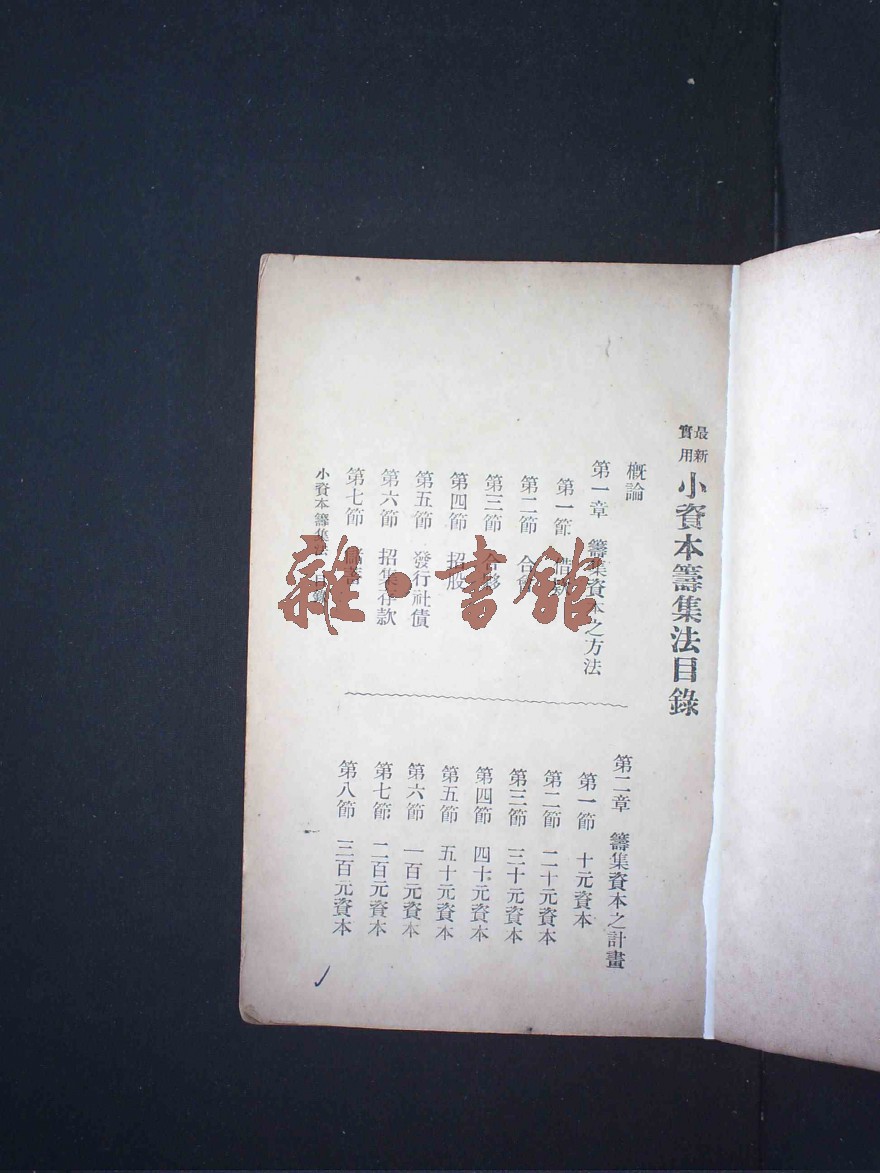 最新
實用
小資本籌集法目錄
概論
第一章 籌集資本之方法
第一節
第二節 合會
第三節 合夥
第四節 招股
第五節 發行社債
第六節 招集存款
第七節 儲蓄
小資本籌集法 目錄
第二章 籌集資本之計畫
第一節 十元資本
第二節 二十元資本
第三節 三十元資本
第四節 四十元資本
第五節 五十元資本
第六節 一百元資本
第七節 二百元資本
第八節 三百元資本
雜·書館